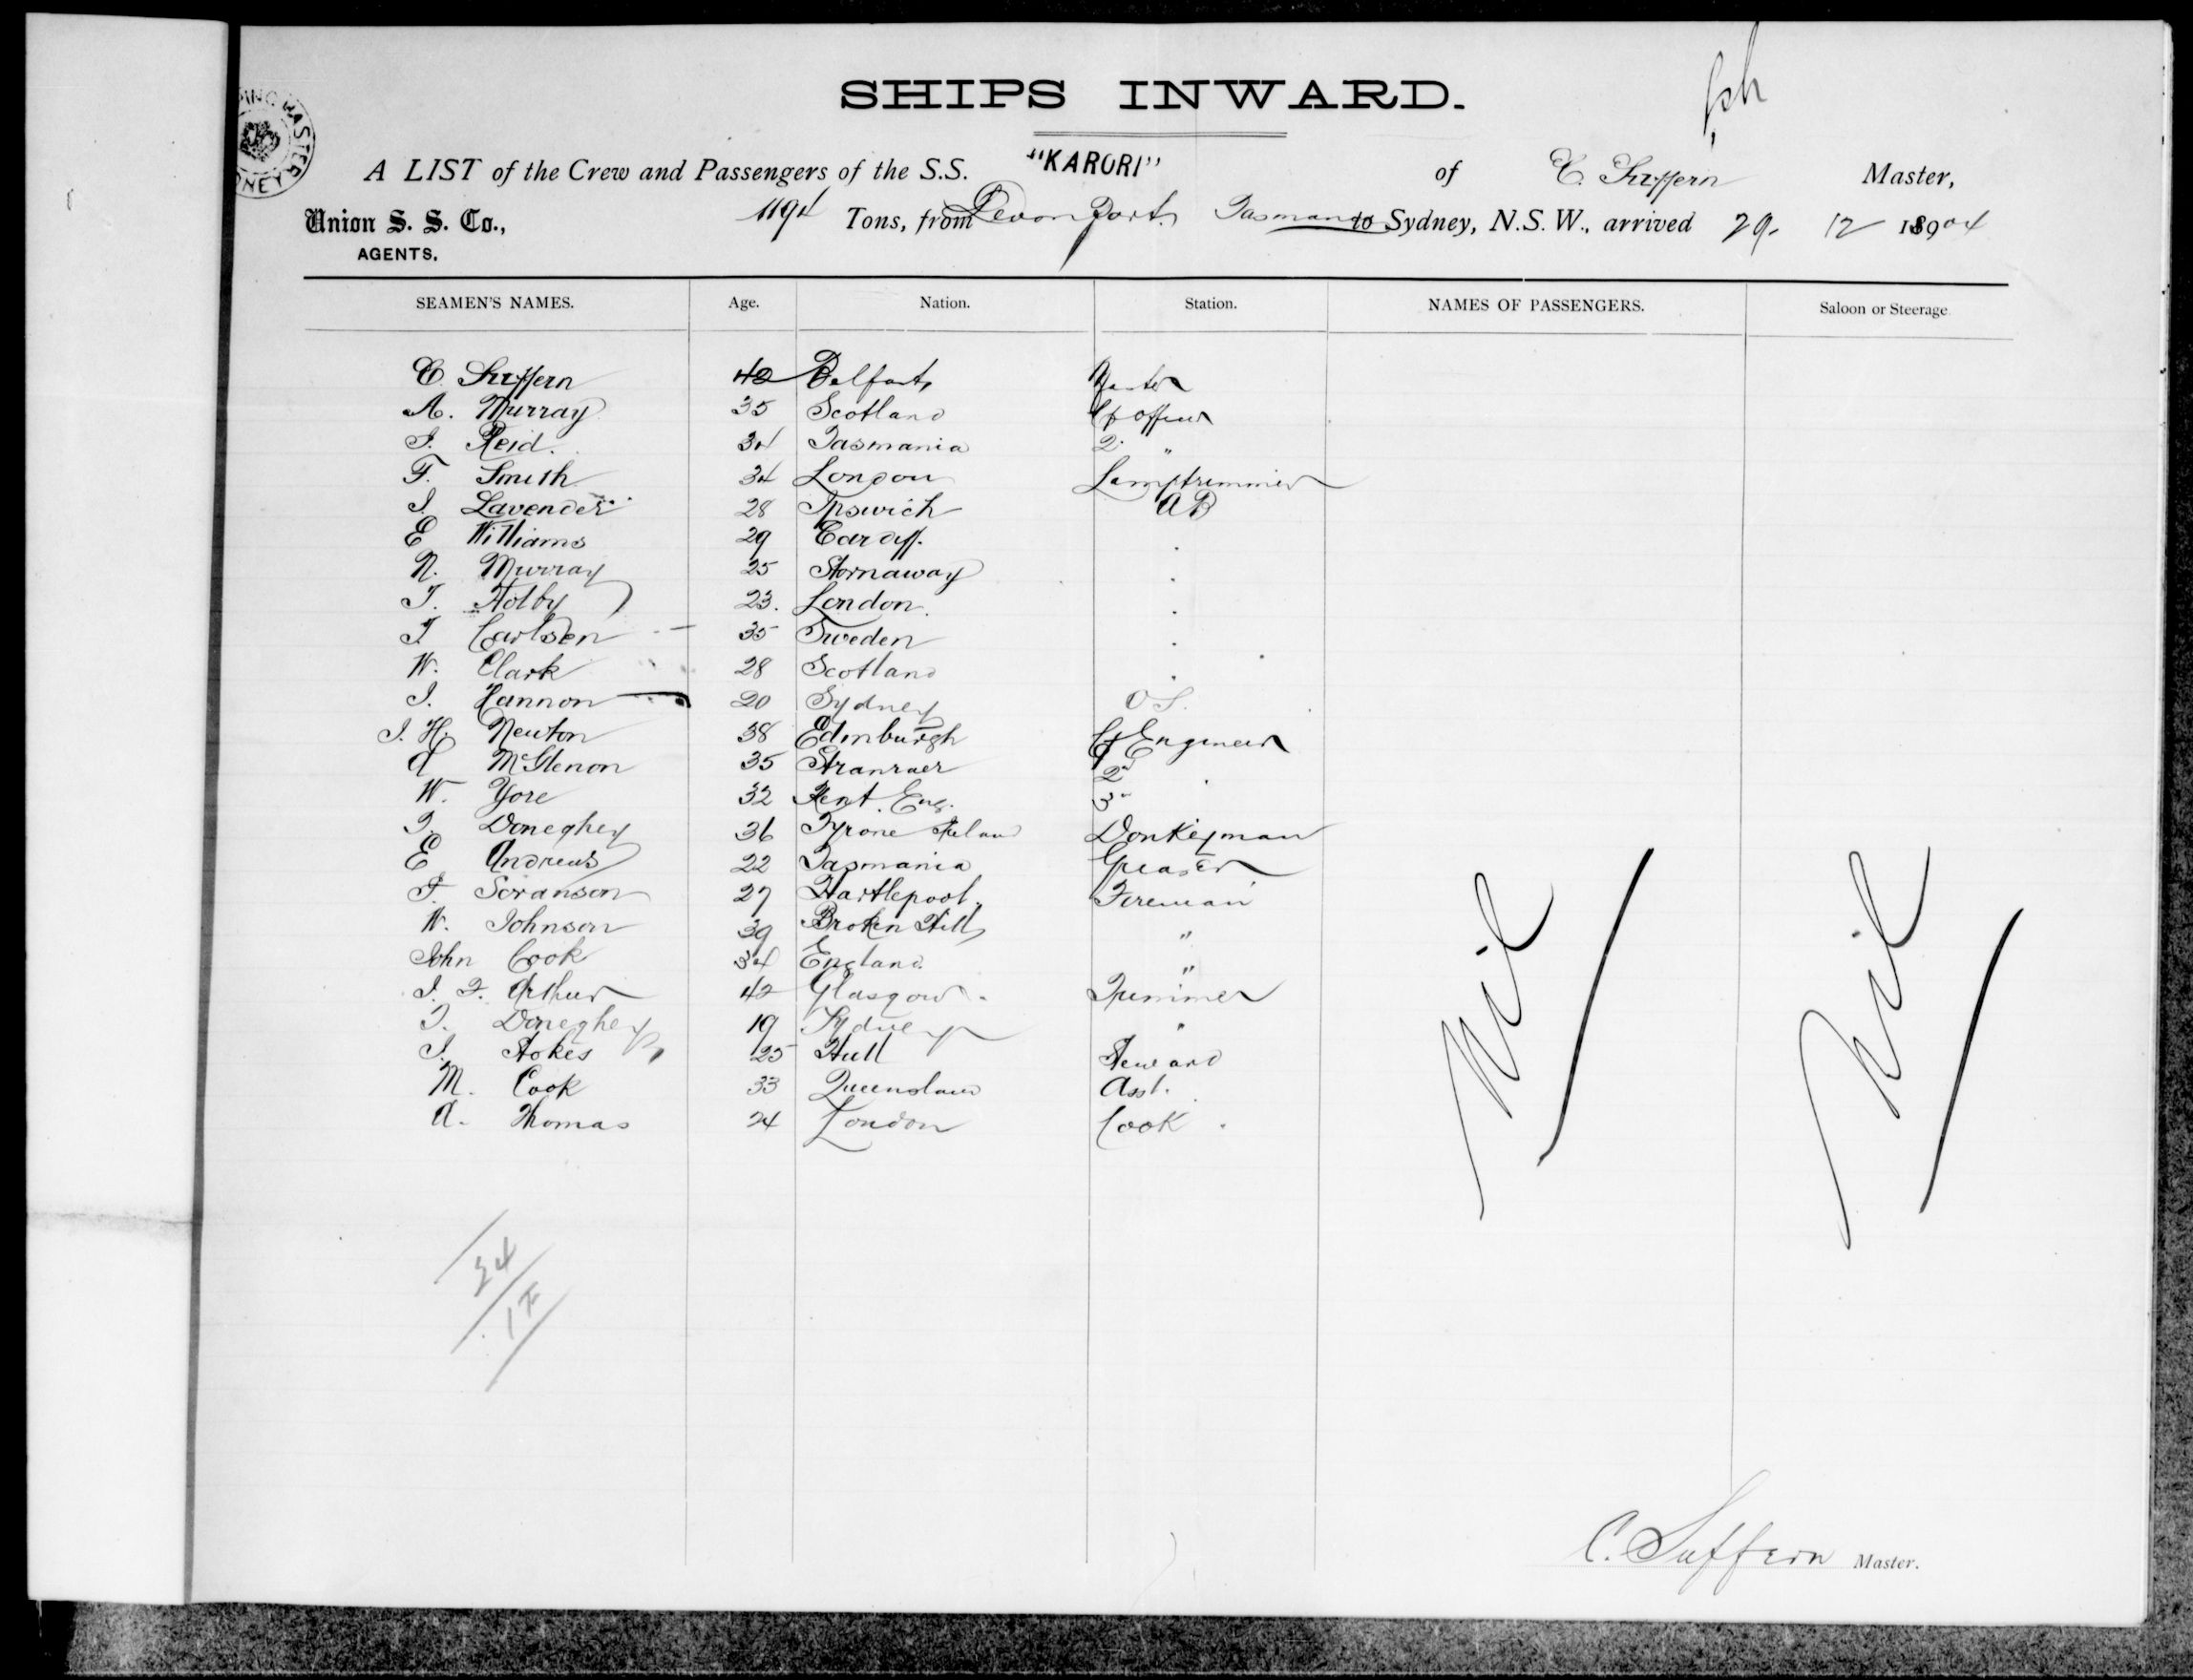 SHIPS INWARD.
A LIST of the Crew and Passengers of the S.S. "KARORI" of C. Suffern Master,
Union S. S. Co., 1194 Tons, from Devonport. Tasmania to Sydney, N.S.W., arrived 29. 12 1904
AGENTS.
SEAMEN'S NAMES. Age. Nation. Station. NAMES OF PASSENGERS. Saloon or Steerage
C. Suffern 42 Belfast Master
A. Murray 35 Scotland Cf Officer
J. Reid. 34 Tasmania 2. "
F. Smith 34 London Lamptrimmer
J. Lavender 28 Ipswich AB
E Williams 29 Cardiff. .
N. Murray 25 Stornaway .
T. Holby 23. London. .
J Carlsen 35 Sweden .
W. Clark 28 Scotland .
J. Hannon 20 Sydney O S.
J. H. Newton 38 Edinburgh Cf Engineer
A McGlenon 35 Stranraer 2d "
W. Yore 32 Kent. Eng. 3d
J. Doneghey 36 Tyrone Ireland Donkeyman
E Andrews 22 Tasmania Greaser
F. Soranson 27 Hartlepool. Fireman
W. Johnson 39 Broken Hill "
John Cook 34 England. "
J. F. Arthur 42 Glasgow. Trimmer
J. Doneghey 19 Sydney "
J. Stokes 25 Hull Steward
M. Cook 33 Queensland Asst.
A. Thomas 24 London Cook .
Nil Nil
24
1F
C. Suffern Master.